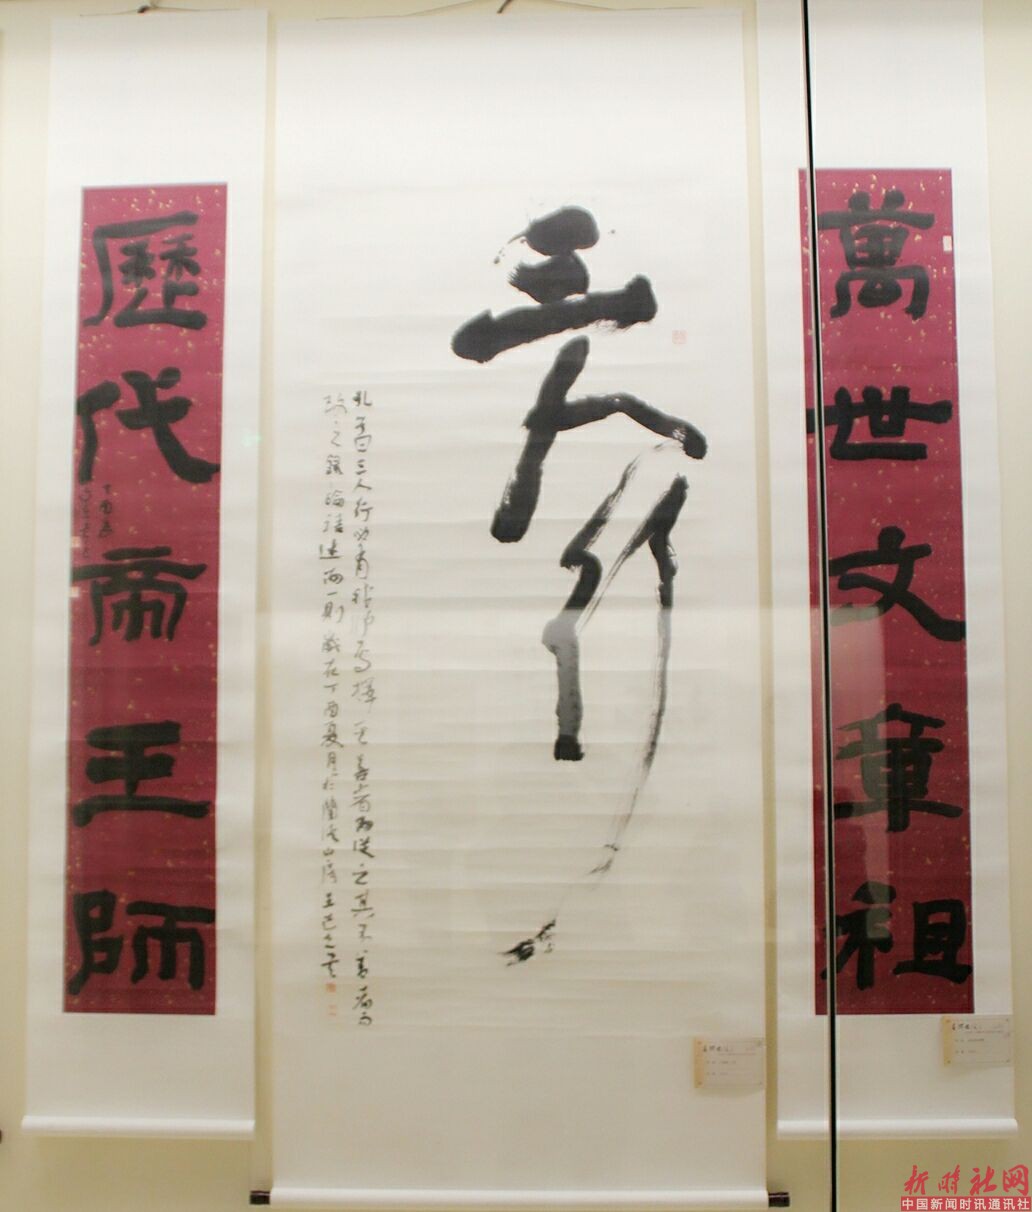 萬世文章祖
三人行
孔子曰三人行必有我師焉擇其善者而從之其不善者而
改之錄論語述而一則歲在丁酉夏月於蘭溪山房王
歷代帝王師
丁酉夏
新时社网
中国新闻时讯通讯社